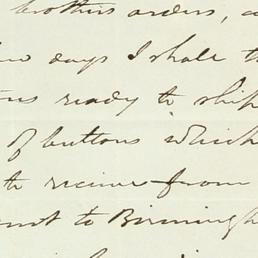 brothers orders, a
few days I shall th
ready to ship
of buttons which
to receive from
to Birmingh